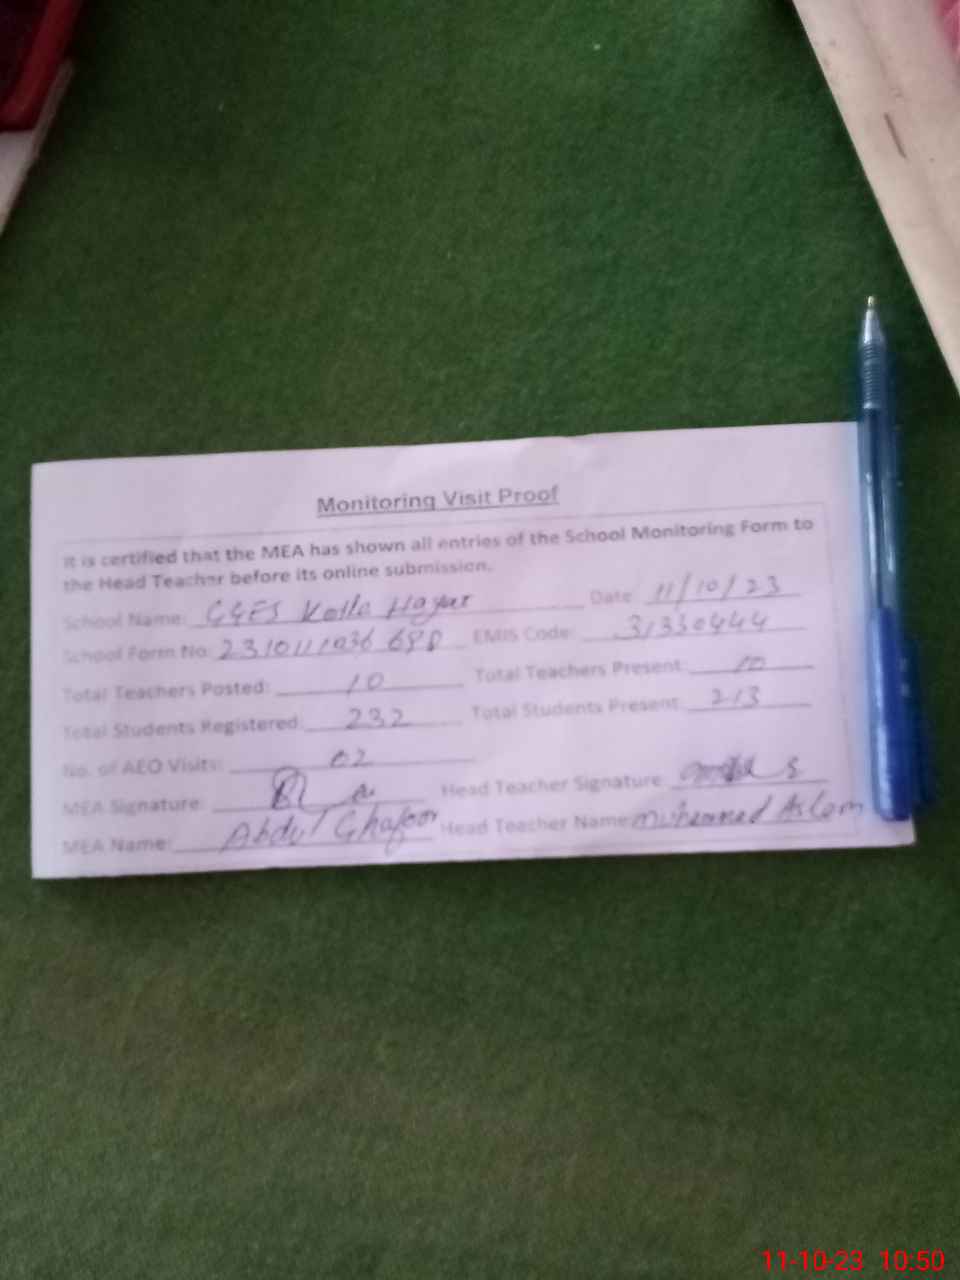 Monitoring Visit Proof
It is certified that the MEA has shown all entries of the School Monitoring Form to
the Head Teacher before its online submission.
School Name: GGES Kotla Date: 11/10/23
School Form No: 2310111036 EMIS Code: 31330444
Total Teachers Posted: 10 Total Teachers Present: 10
Total Students Registered: 232 Total Students Present: 213
No. of AEO Visits: 02
MEA Signature: Head Teacher Signature
MEA Name: Abdul Ghafoor Head Teacher Name: muhammad Aslam
11-10-23 10:50